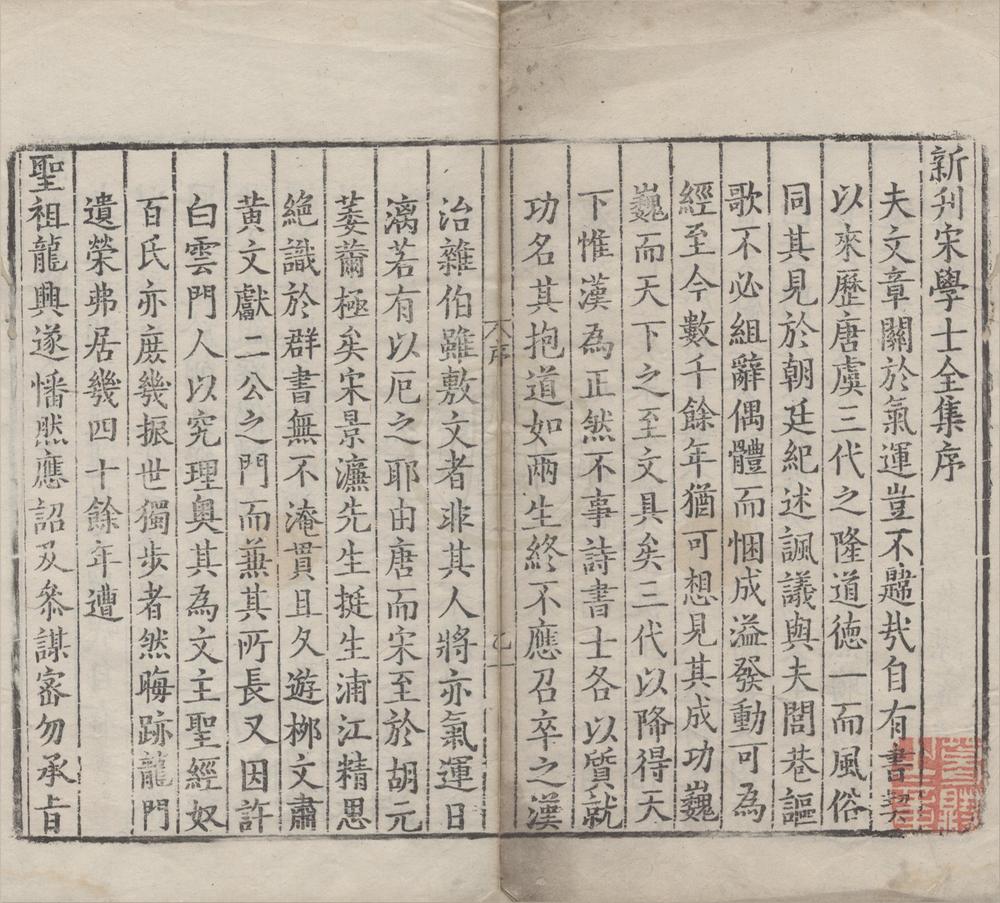 新刋宋學士全集序
夫文章關於氣運豈不韙㢤自有書契
以來歷唐虞三代之隆道德一而風俗
同其見於朝廷紀述諷議與夫閭巷謳
歌不必組辭偶體而悃成溢發動可為
經至今數千餘年猶可想見其成功巍
巍而天下之至文具矣三代以降得天
下惟漢為正然不事詩書士各以質就
功名其抱道如兩生終不應召卒之漢
序
治雜伯雖敷文者非其人將亦氣運日
漓若有以厄之耶由唐而宋至於胡元
萎薾極矣宋景濂先生挺生浦江精思
絶識於群書無不淹貫且久遊栁文肅
黃文獻二公之門而兼其所長又因許
白雲門人以究理奥其為文主聖經奴
百氏亦庶幾振世獨步者然晦跡龍門
遺榮弗居幾四十餘年遭
聖祖龍興遂幡然應詔及叅謀密勿承㫖